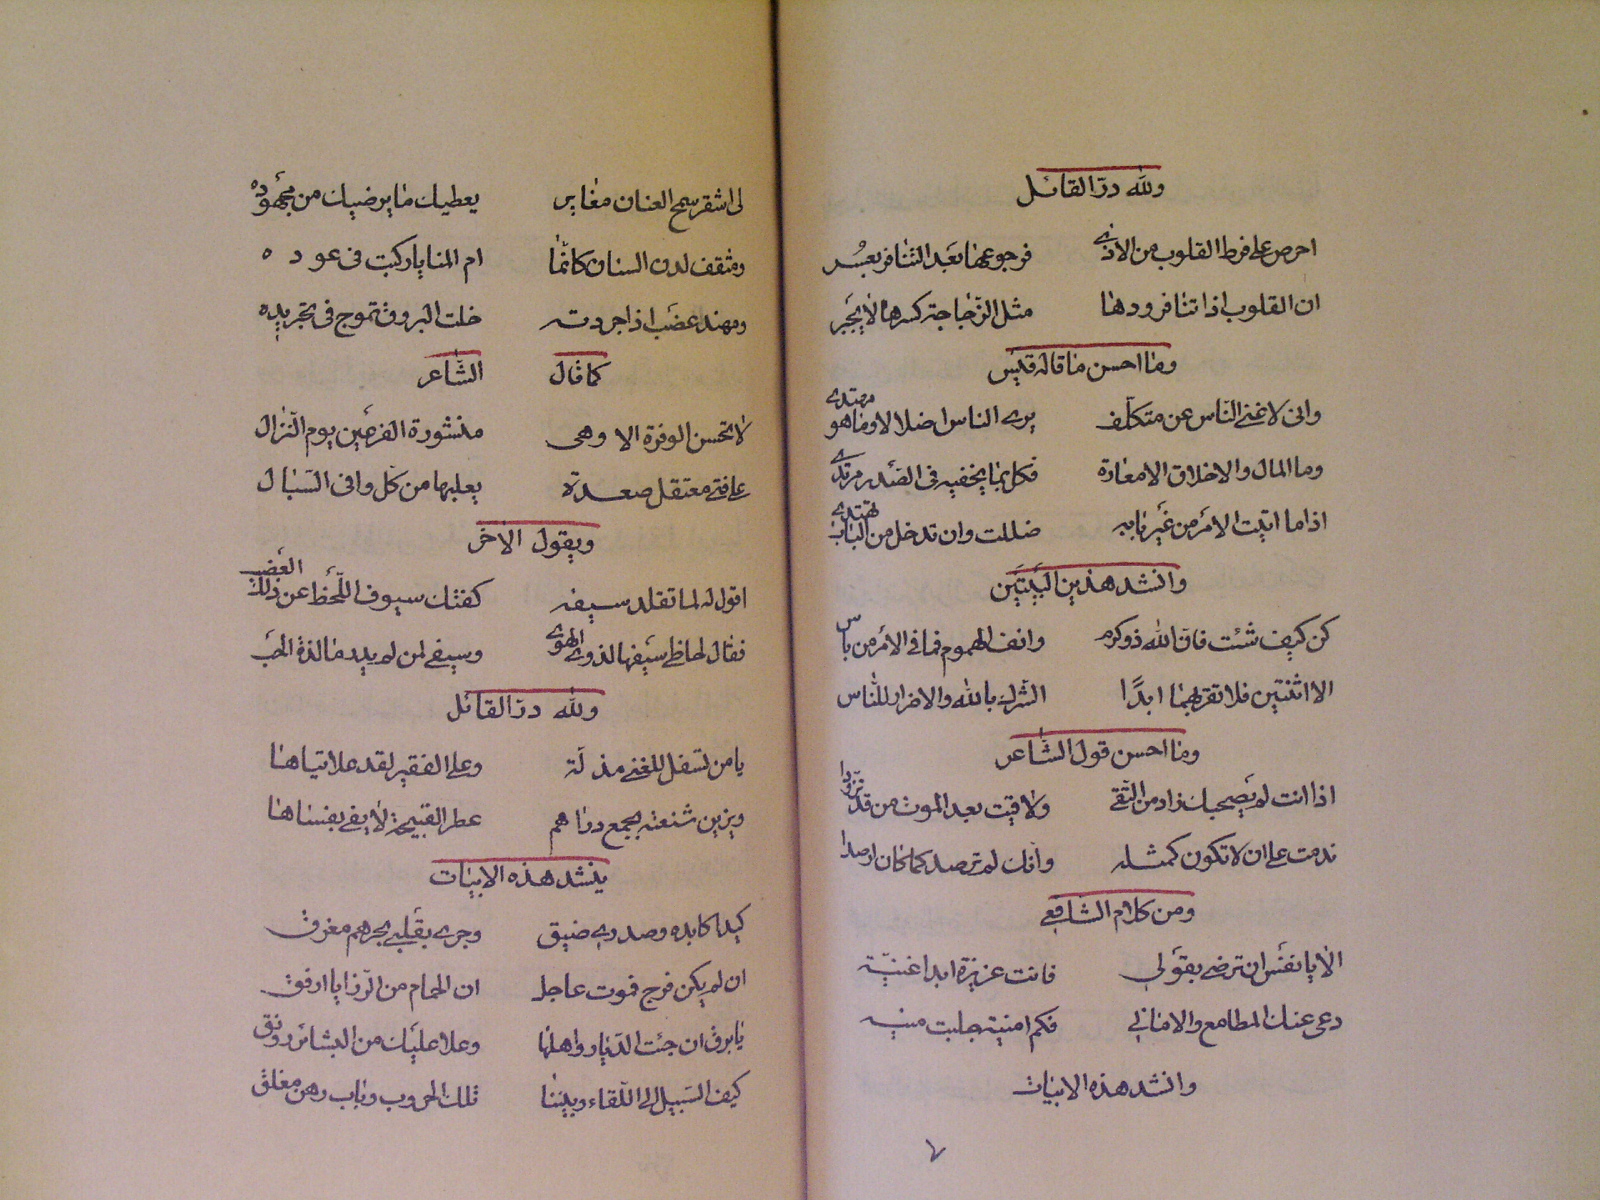 ولله درّ القائل
احرص على فرط القلوب من الاذى فرجوعها بَعد التنافر يعسُر
ان القلوب اذا تنافر ودها مثل الزّجاجة كسرها لا يجبر
وما احسن ما قاله قيس
وانى لاغنى النّاس عن متكلّف يرى الناس اضلالا وما هو مهتدى
وما المال والاخلاق الا معارة فكل بما يخفيه فى الصّدر مرتدى
اذا ما اتيت الامر من غير بابه ضللت وان تدخل من الباب تهتدى
وانشد هذين البَيتَين
كن كيف شئت فان الله ذو كرم وانف الهموم فما فى الامر من باس
الا اثنتين فلا تقربهما ابدًا الشرك بالله والاضرار للنّاس
وما احسن قول الشّاعر
اذا انت لم يصحبك زاد من التّقى ولاقيت بعد الموت من قد تزودا
ندمت على ان لا تكون كمثله وانك لم ترصد كما كان ارصدا
ومن كلام الشافعى
الا يا نفس ان ترضى بقولى فانت عزيزة ابدا غنيّة
دعى عنك المطامع والامانى فكم امنية جلبت منيه
وانشد هذه الابيات
٧
لى اشقر سمح العنان مغاير يعطيك ما يرضيك من مجهوده
ومثقف لدن السنان كانّما ام المنايا ركبت فى عوده
ومهند عضب اذا جردته خلت البروق تموج فى تجريده
كما قال الشّاعر
لا تحسن الوفرة الا وهى منشورة الفرعين يوم النّزال
على فتى معتقل صعدة يعلبها من كل وافى السّبال
ويقول الاخر
اقول له لما تقلد سيفه كفتك سيوف اللّحظ عن ذلك العضب
فقال لحاظى سيفها لذوى الهوى وسيفى لمن لم يدر ما لذة الحب
ولله درّ القائل
يا من تسفل للغنى مذلّة وعلى الفقير لقد علا تياها
ويزين شنعته بجمع دراهم عطر القبيحة لا يفى بفساها
ينشد هذه الابيات
كبدا كابده وصدرى ضيق وجرى بقلبى بحرهم مغرق
ان لم يكن فرج فموت عاجل ان الحمام من الرّزايا ارفق
يا برق ان جئت الدّيار واهلها وعلا عليك من البشائر رونق
كيف السّبيل الى اللّقاء وبيننا تلك الحروب وباب رهن مغلق